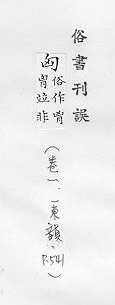 俗書刊誤
匈
俗作
胷並非
(卷一、一東韻、P.541)